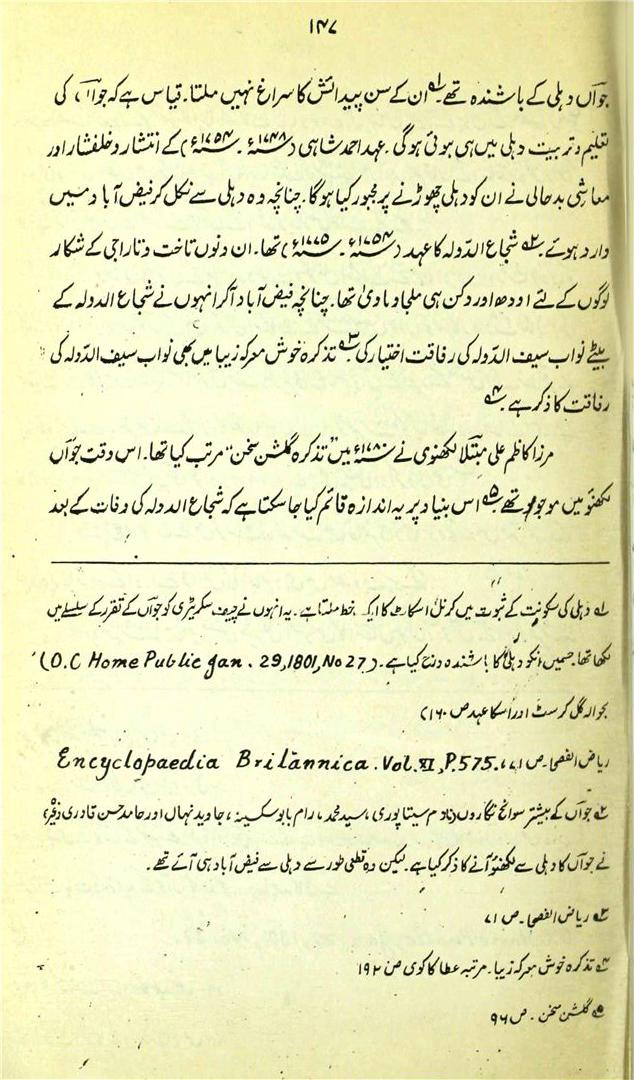 ۱۴۷
جواںؔ دہلی کے باشندہ تھے۔۱؎ ان کے سن پیدائش کا سراغ نہیں ملتا۔ قیاس ہے کہ جواںؔ کی
تعلیم و تربیت دہلی میں ہی ہوئی ہوگی۔ عہد احمد شاہی (۱۷۴۸ء۔ ۱۷۵۴ء) کے انتشار و خلفشار اور
معاشی بدحالی نے ان کو دہلی چھوڑنے پر مجبور کیا ہوگا۔ چنانچہ وہ دہلی سے نکل کر فیض آباد میں
وارد ہوئے۔۲؎ شجاع الدّولہ کا عہد (۱۷۵۴ء۔ ۱۷۷۵ء) تھا۔ ان دنوں تاخت و تاراجی کے شکار
لوگوں کے لئے اودھ اور دکن ہی ملجا و ماویٰ تھا۔ چنانچہ فیض آباد آکر انہوں نے شجاع الدولہ کے
بیٹے نواب سیف الدّولہ کی رفاقت اختیار کی۔۳؎ تذکرہ خوش معرکہ زیبا میں بھی نواب سیف الدّولہ کی
رفاقت کا ذکر ہے۔۴؎
مرزا کاظم علی مبتلاؔ لکھنوی نے ۱۷۸۰ء میں "تذکرہ گلشن سخن" مرتب کیا تھا۔ اس وقت جواںؔ
لکھنؤ میں موجود تھے۔۵؎ اس بنیاد پر یہ اندازہ قائم کیا جاسکتا ہے کہ شجاع الدولہ کی وفات کے بعد
۱؎ دہلی کی سکونت کے ثبوت میں کرنل اسکاٹ کا ایک خط ملتا ہے۔ یہ انہوں نے چیف سکریٹری کو جواںؔ کے تقرر کے سلسلے میں
لکھا تھا۔ جسمیں انکو دہلی کا باشندہ درج کیا ہے۔ (O.C Home Public Jan. 29,1801, No 27)
بحوالہ گل کرسٹ اور اسکا عہد ص ۱۶۰)
ریاض الفصحا۔ ص ۷۱، Encyclopaedia Britannica. Vol. VI, P.575.
۲؎ جواںؔ کے بیشتر سوانح نگاروں (نادم سیتاپوری، سید محمد، رام بابو سکسینہ، جاوید نہاں اور حامد حسن قادری وغیرہ)
نے جواںؔ کا دہلی سے لکھنؤ آنے کا ذکر کیا ہے۔ لیکن وہ قطعی طور سے دہلی سے فیض آباد ہی آئے تھے۔
۳؎ ریاض الفصحا۔ ص ۷۱
۴؎ تذکرہ خوش معرکہ زیبا۔ مرتبہ عطا کاکوی ص ۱۹۲
۵؎ گلشن سخن۔ ص ۹۶